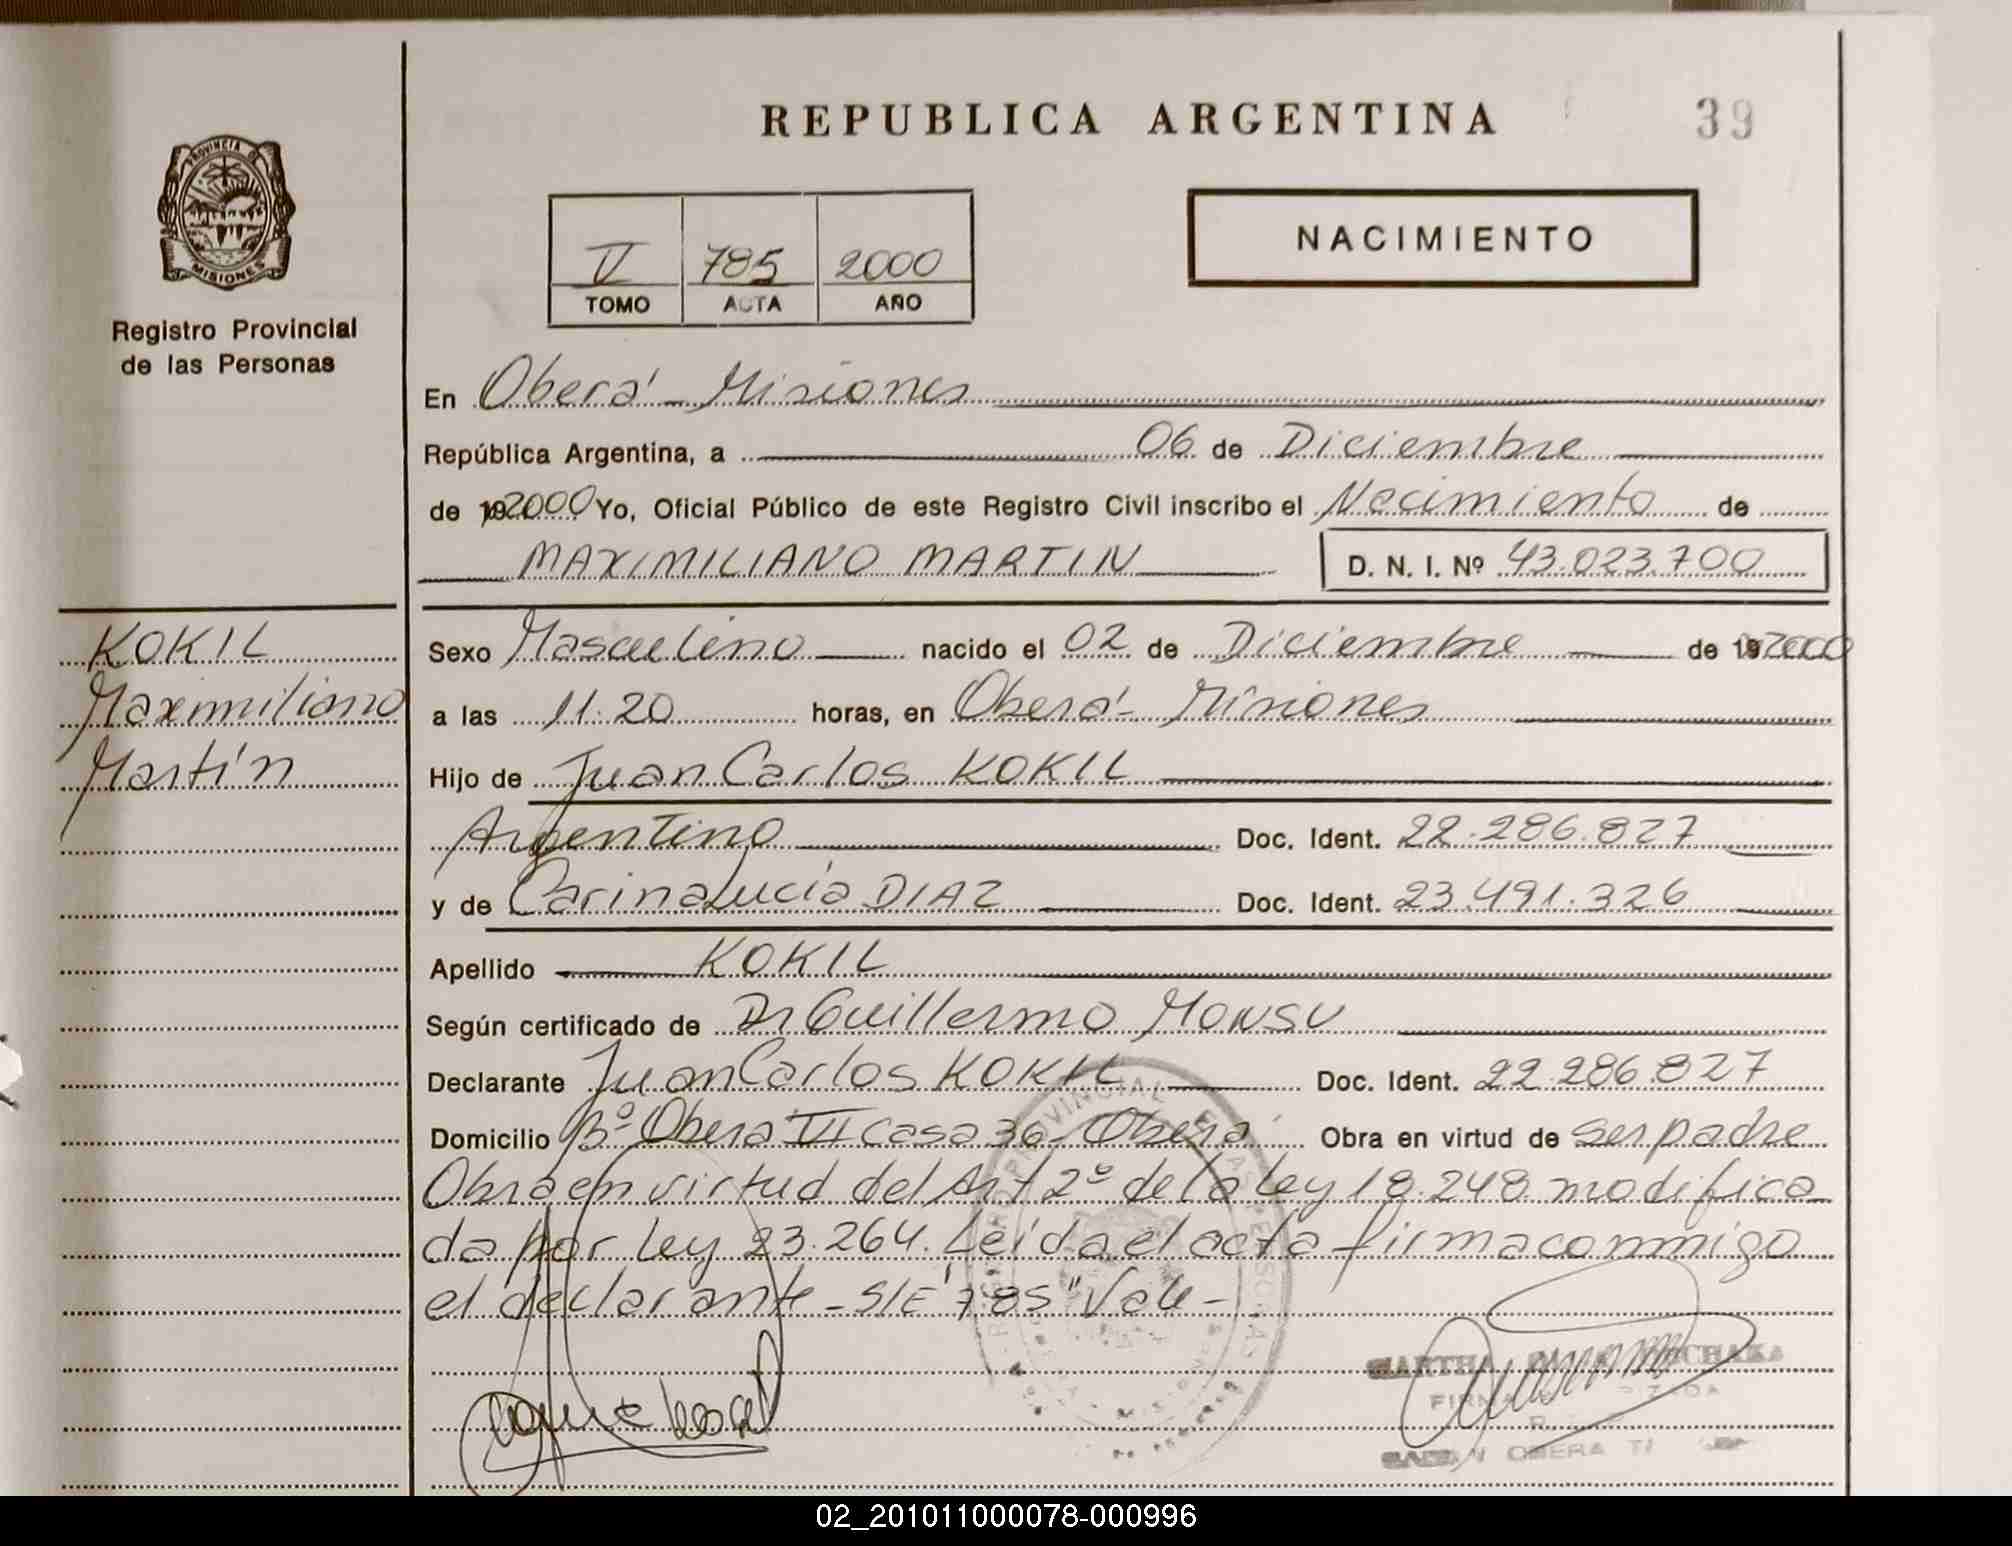 REPUBLICA ARGENTINA 39
PROVINCIA DE
MISIONES
Registro Provincial
de las Personas
V 785 2000
TOMO ACTA AÑO
NACIMIENTO
En Oberá - Misiones
República Argentina, a 06 de Diciembre
de 192000 Yo, Oficial Público de este Registro Civil inscribo el Nacimiento de
MAXIMILIANO MARTIN D. N. I. Nº 43.023.700
KOKIL
Maximiliano
Martín
Sexo Masculino nacido el 02 de Diciembre de 192000
a las 11.20 horas, en Oberá - Misiones
Hijo de Juan Carlos KOKIL
Argentino Doc. Ident. 22.286.827
y de Carina Lucía DIAZ Doc. Ident. 23.491.326
Apellido KOKIL
Según certificado de Dr Guillermo MONSU
Declarante Juan Carlos KOKIL Doc. Ident. 22.286.827
Domicilio Bº Oberá VI casa 36 - Oberá Obra en virtud de ser padre
Obra en virtud del Art 2º de la ley 18.248 modifica
da por ley 23.264. Leída el acta firma conmigo
el declarante - S/E "785" Vale -
REGISTRO PROVINCIAL DE LAS PERSONAS
MARTHA
FIRMA
OBERA
02_201011000078-000996